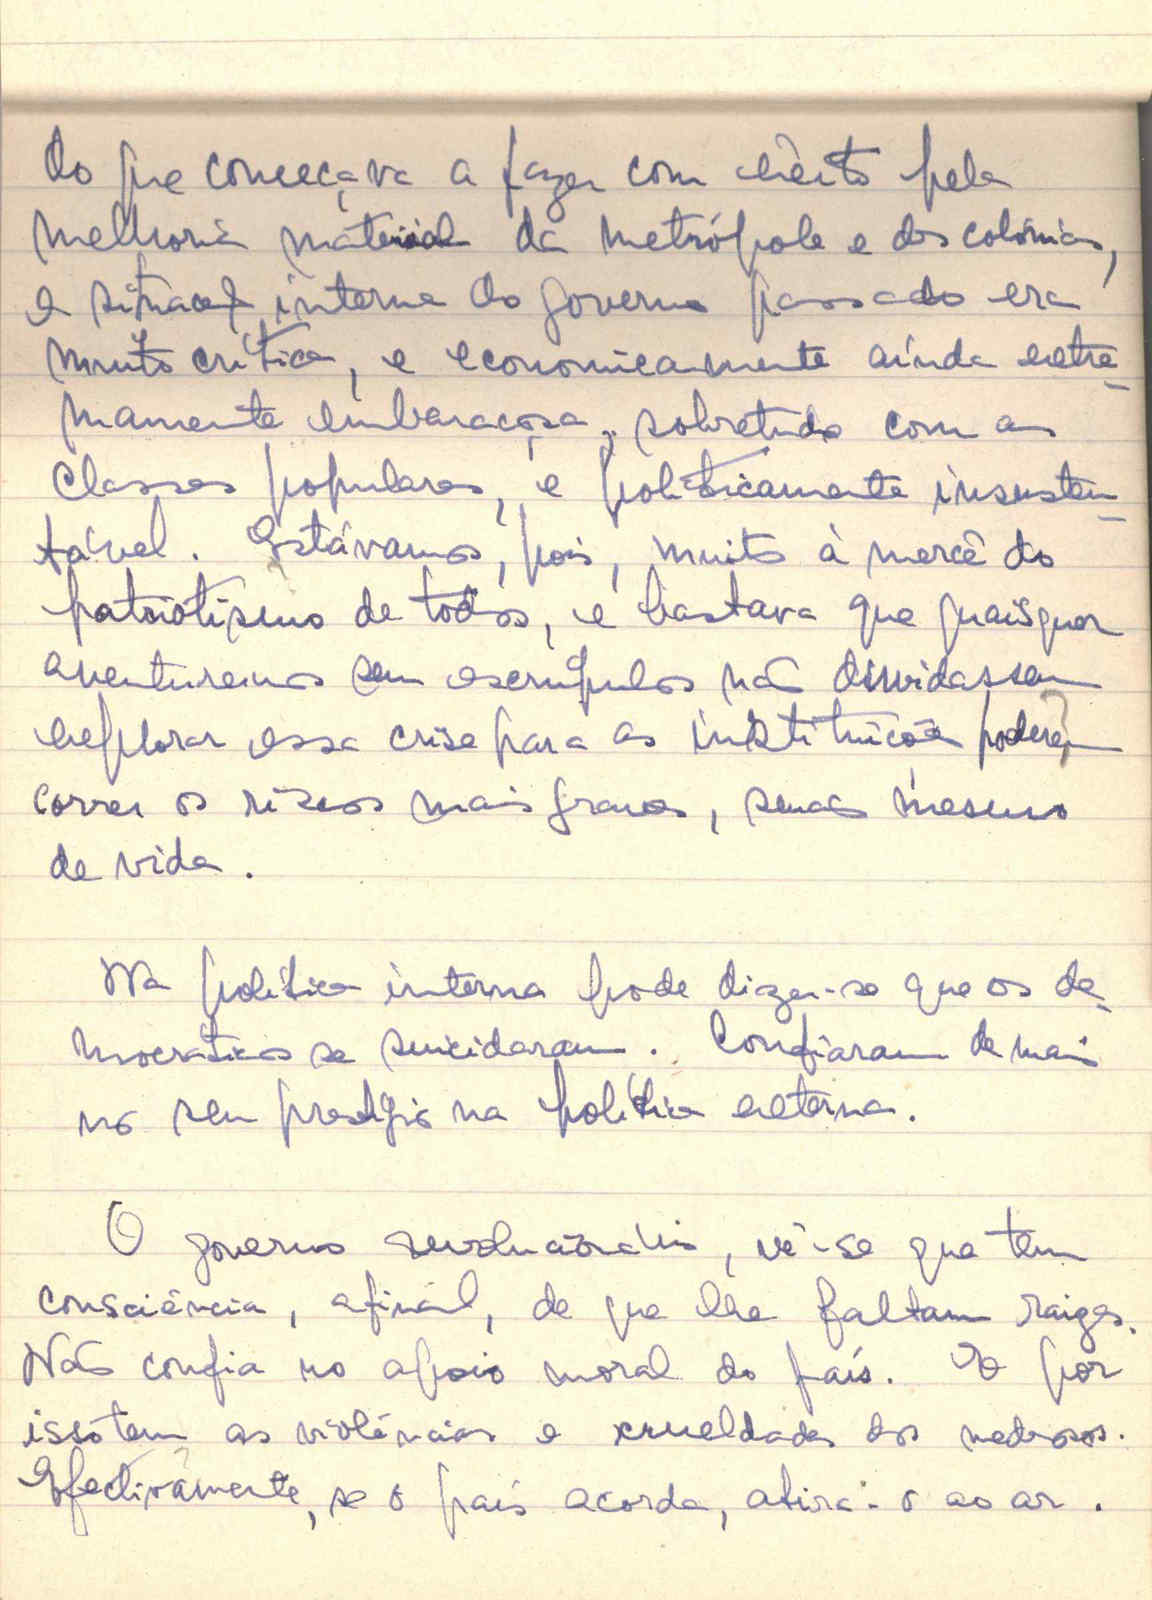 do que começava a fazer com êxito pela
melhoria material da metrópole e das colónias,
a situação interna do governo passado era
muito crítica, e economicamente ainda extre-
mamente embaraçosa, sobretudo com as
classes populares, e politicamente insusten-
tável. Estávamos, pois, muito à mercê do
patriotismo de todos, e bastava que quaisquer
aventureiros sem escrúpulos não duvidassem
explorar essa crise para as instituições poderem
correr os riscos mais graves, senão mesmo
de vida.
Na política interna pode dizer-se que os de-
mocráticos se suicidaram. Confiaram de mais
no seu prestígio na política externa.
O governo revolucionário, vê-se que tem
consciência, afinal, de que lhe faltam raízes.
Não confia no apoio moral do país. E por
isso tem as violências e crueldades dos medrosos.
Efectivamente, se o país acorda, atira-o ao ar.